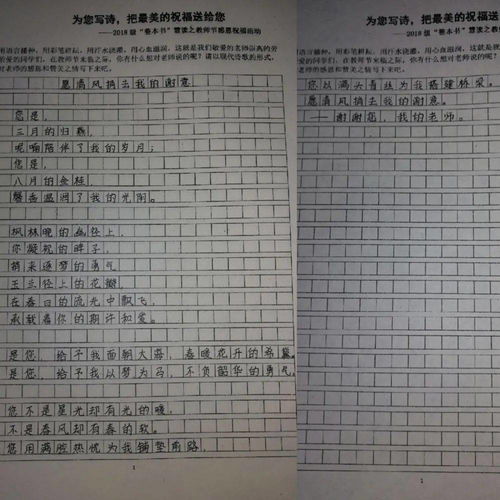 为您写诗，把最美的祝福送给您
——2018级“卷本书”慧读之教师节感恩祝福活动
用语言播种，用彩笔耕耘，用汗水浇灌，用心血滋润，这就是我们敬爱的老师崇高的劳
爱的同学们，在教师节来临之际，你有什么想对老师说的呢？请以现代诗歌的形式，
对老师的感恩和赞美之情写下来吧。
愿清风捎去我的谢意
您是，
三月的归燕，
呢喃陪伴了我的岁月；
您是，
八月的金桂，
馨香温润了我的光阴。
枫林晚的幽径上，
你凝视的眸子，
捎来逐梦的勇气
玉兰径上的花瓣，
在春日的流光中飘飞，
承载着你的期许和爱。
是您，给予我面朝大海，春暖花开的希冀。
是您，给予我以梦为马，不负韶华的勇气。
您不是星光却有光的暖，
不是春风却有春的软。
您用满腔热忱为我铺垫前路，
1
为您写诗，把最美的祝福送
——2018级“卷本书”慧读之教师
用语言播种，用彩笔耕耘，用汗水浇灌，用心血滋润，这就
爱的同学们，在教师节来临之际，你有什么想对老师说的
对老师的感恩和赞美之情写下来吧。
您以满头青丝为我搭建桥梁。
愿清风捎去我的谢意。
——谢谢您，我的老师。
1